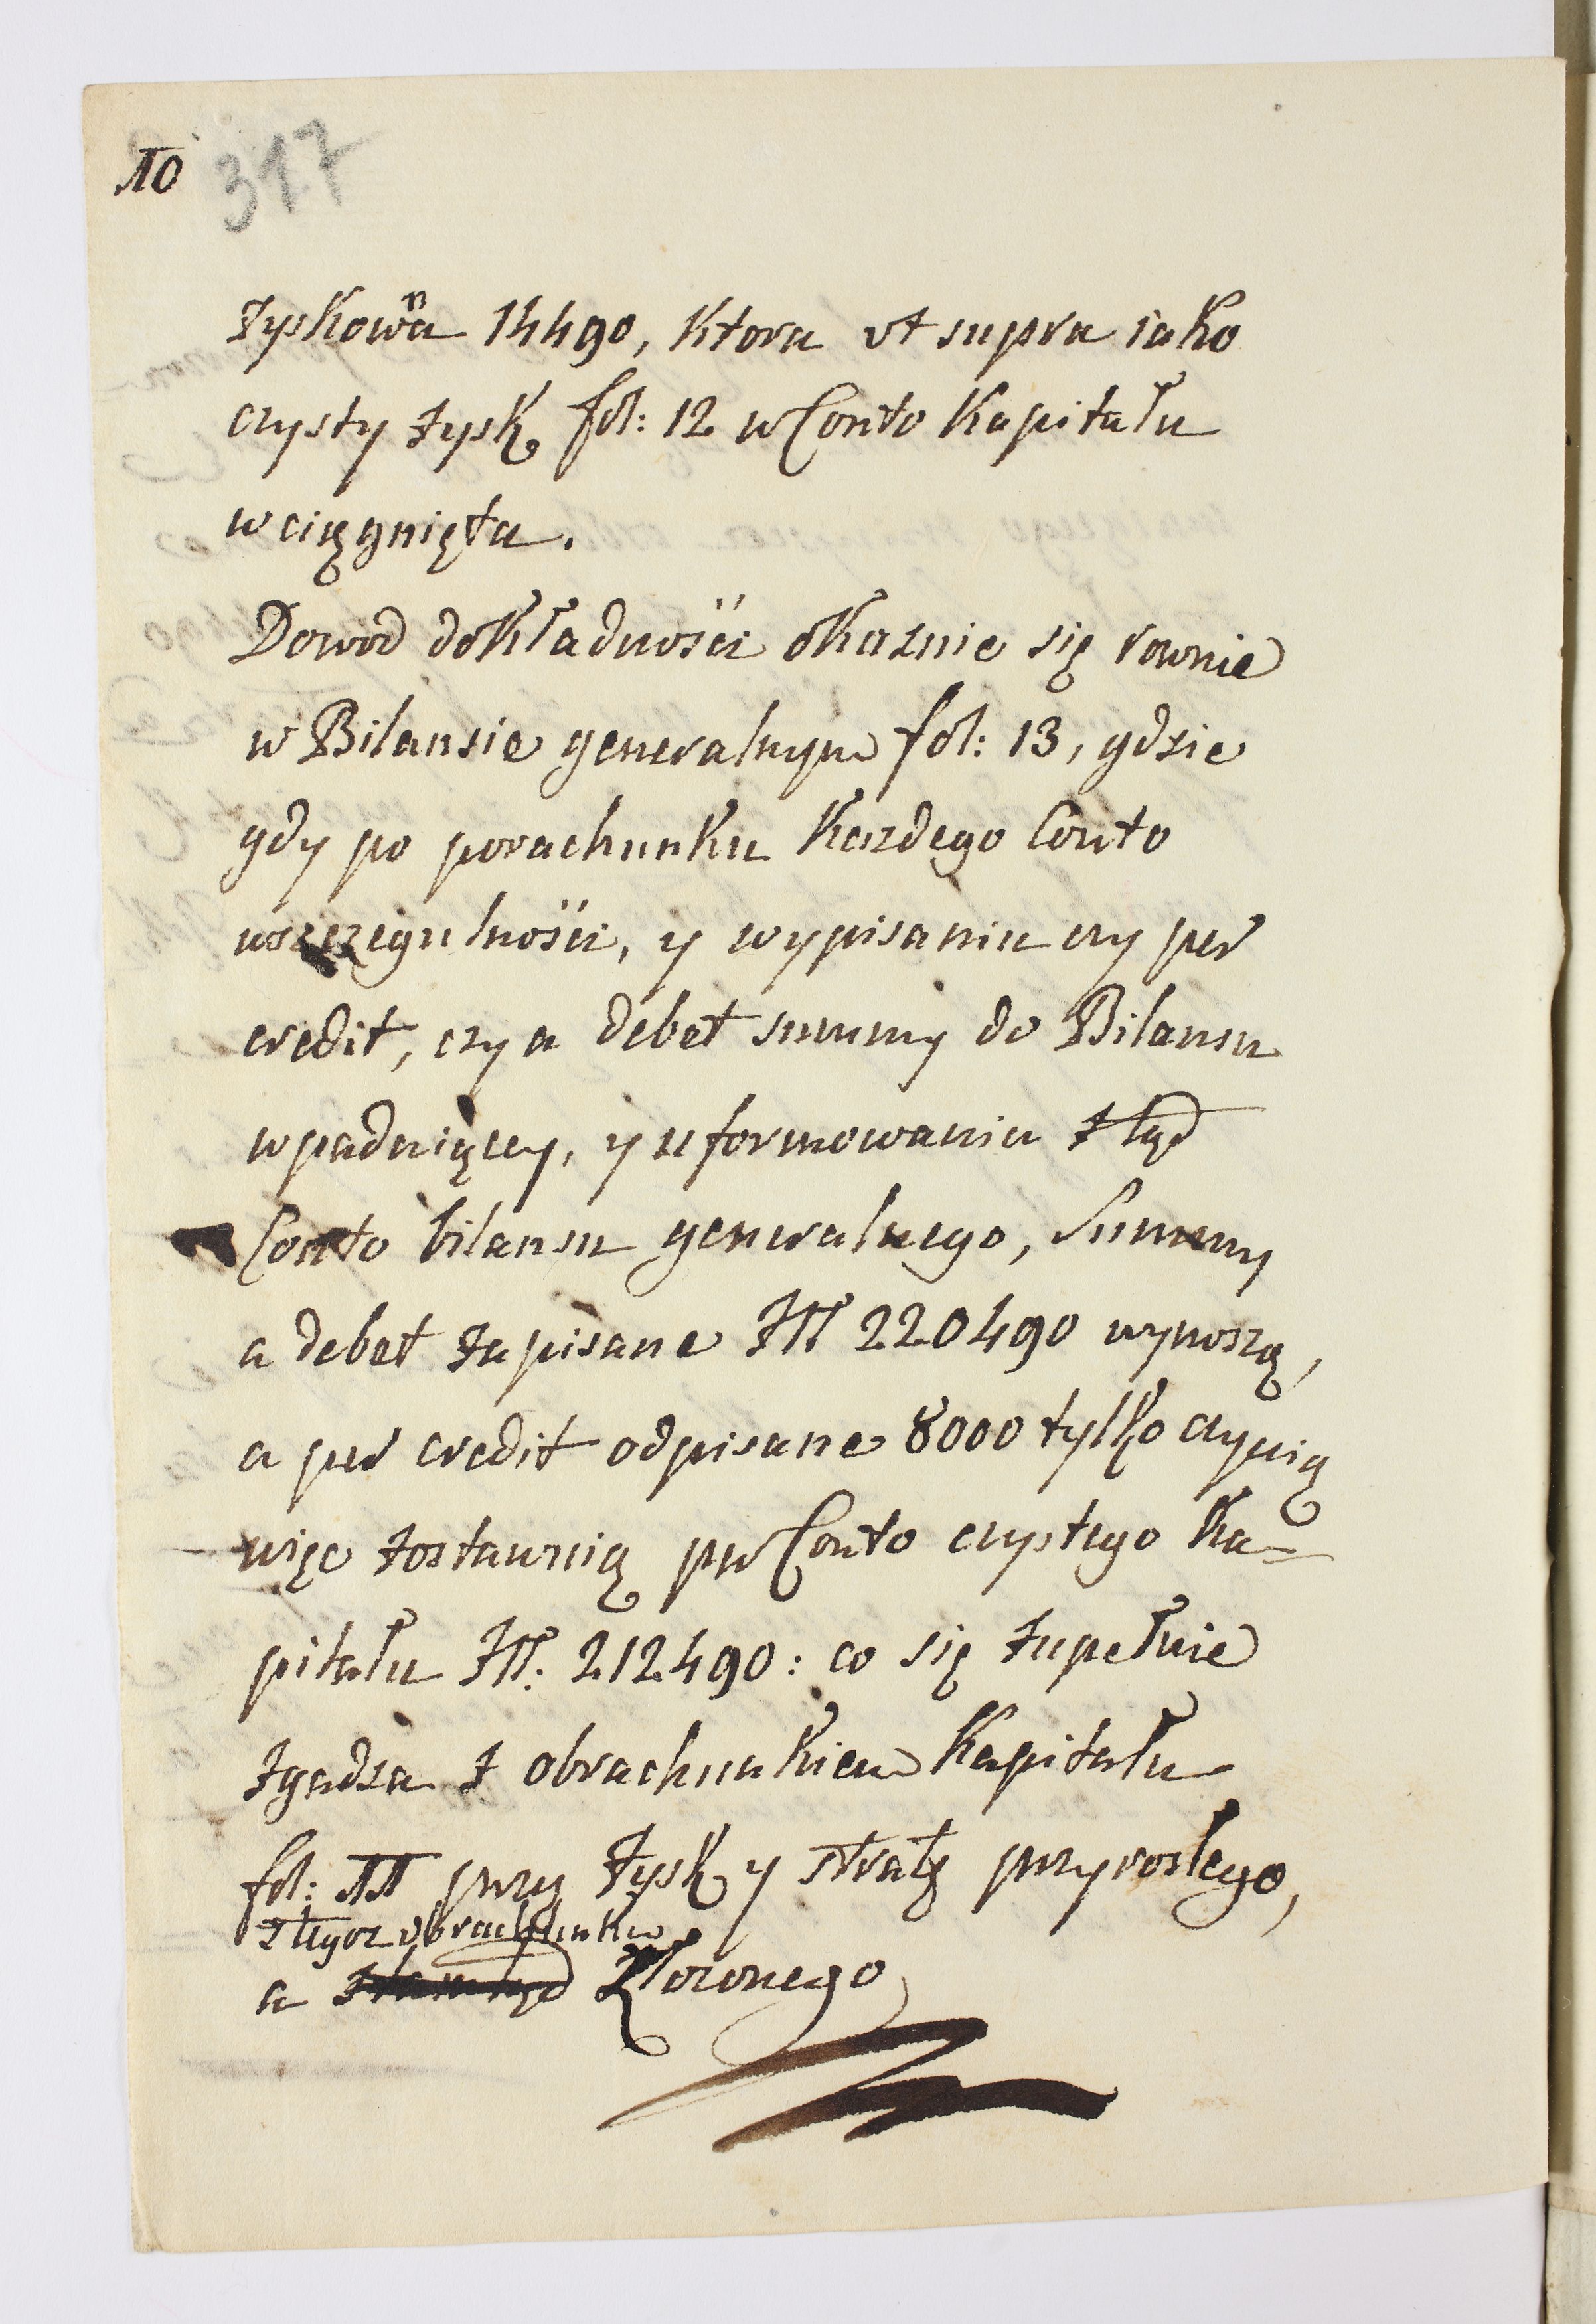 10 317
zyskowna 14490, ktora ut supra iako
czysty zysk fol: 12 w Conto kapitału
wciągnięta.
Dowod dokładności okaznie się rownie
w Bilansie generalnym fol: 13, gdzie
gdy po porachunku kazdego Conto
wszczegulności, y wypisaniu czy per
credit, czy a debet summy do Bilansu
wpadaiącey, y uformowaniu ztąd
Conto bilansu generalnego, Summy
a debet zapisane Złł 220490 wynoszą,
a per credit odpisane 8000 tylko czynią
więc zostawuią per Conto czystego ka-
pitału Złł. 212490: co się zupełnie
zgadza z obrachunkiem kapitału
fol: 11 przy zysk y stratę przyrosłego,
z tegoz obrachunku
a ztamtąd złozonego